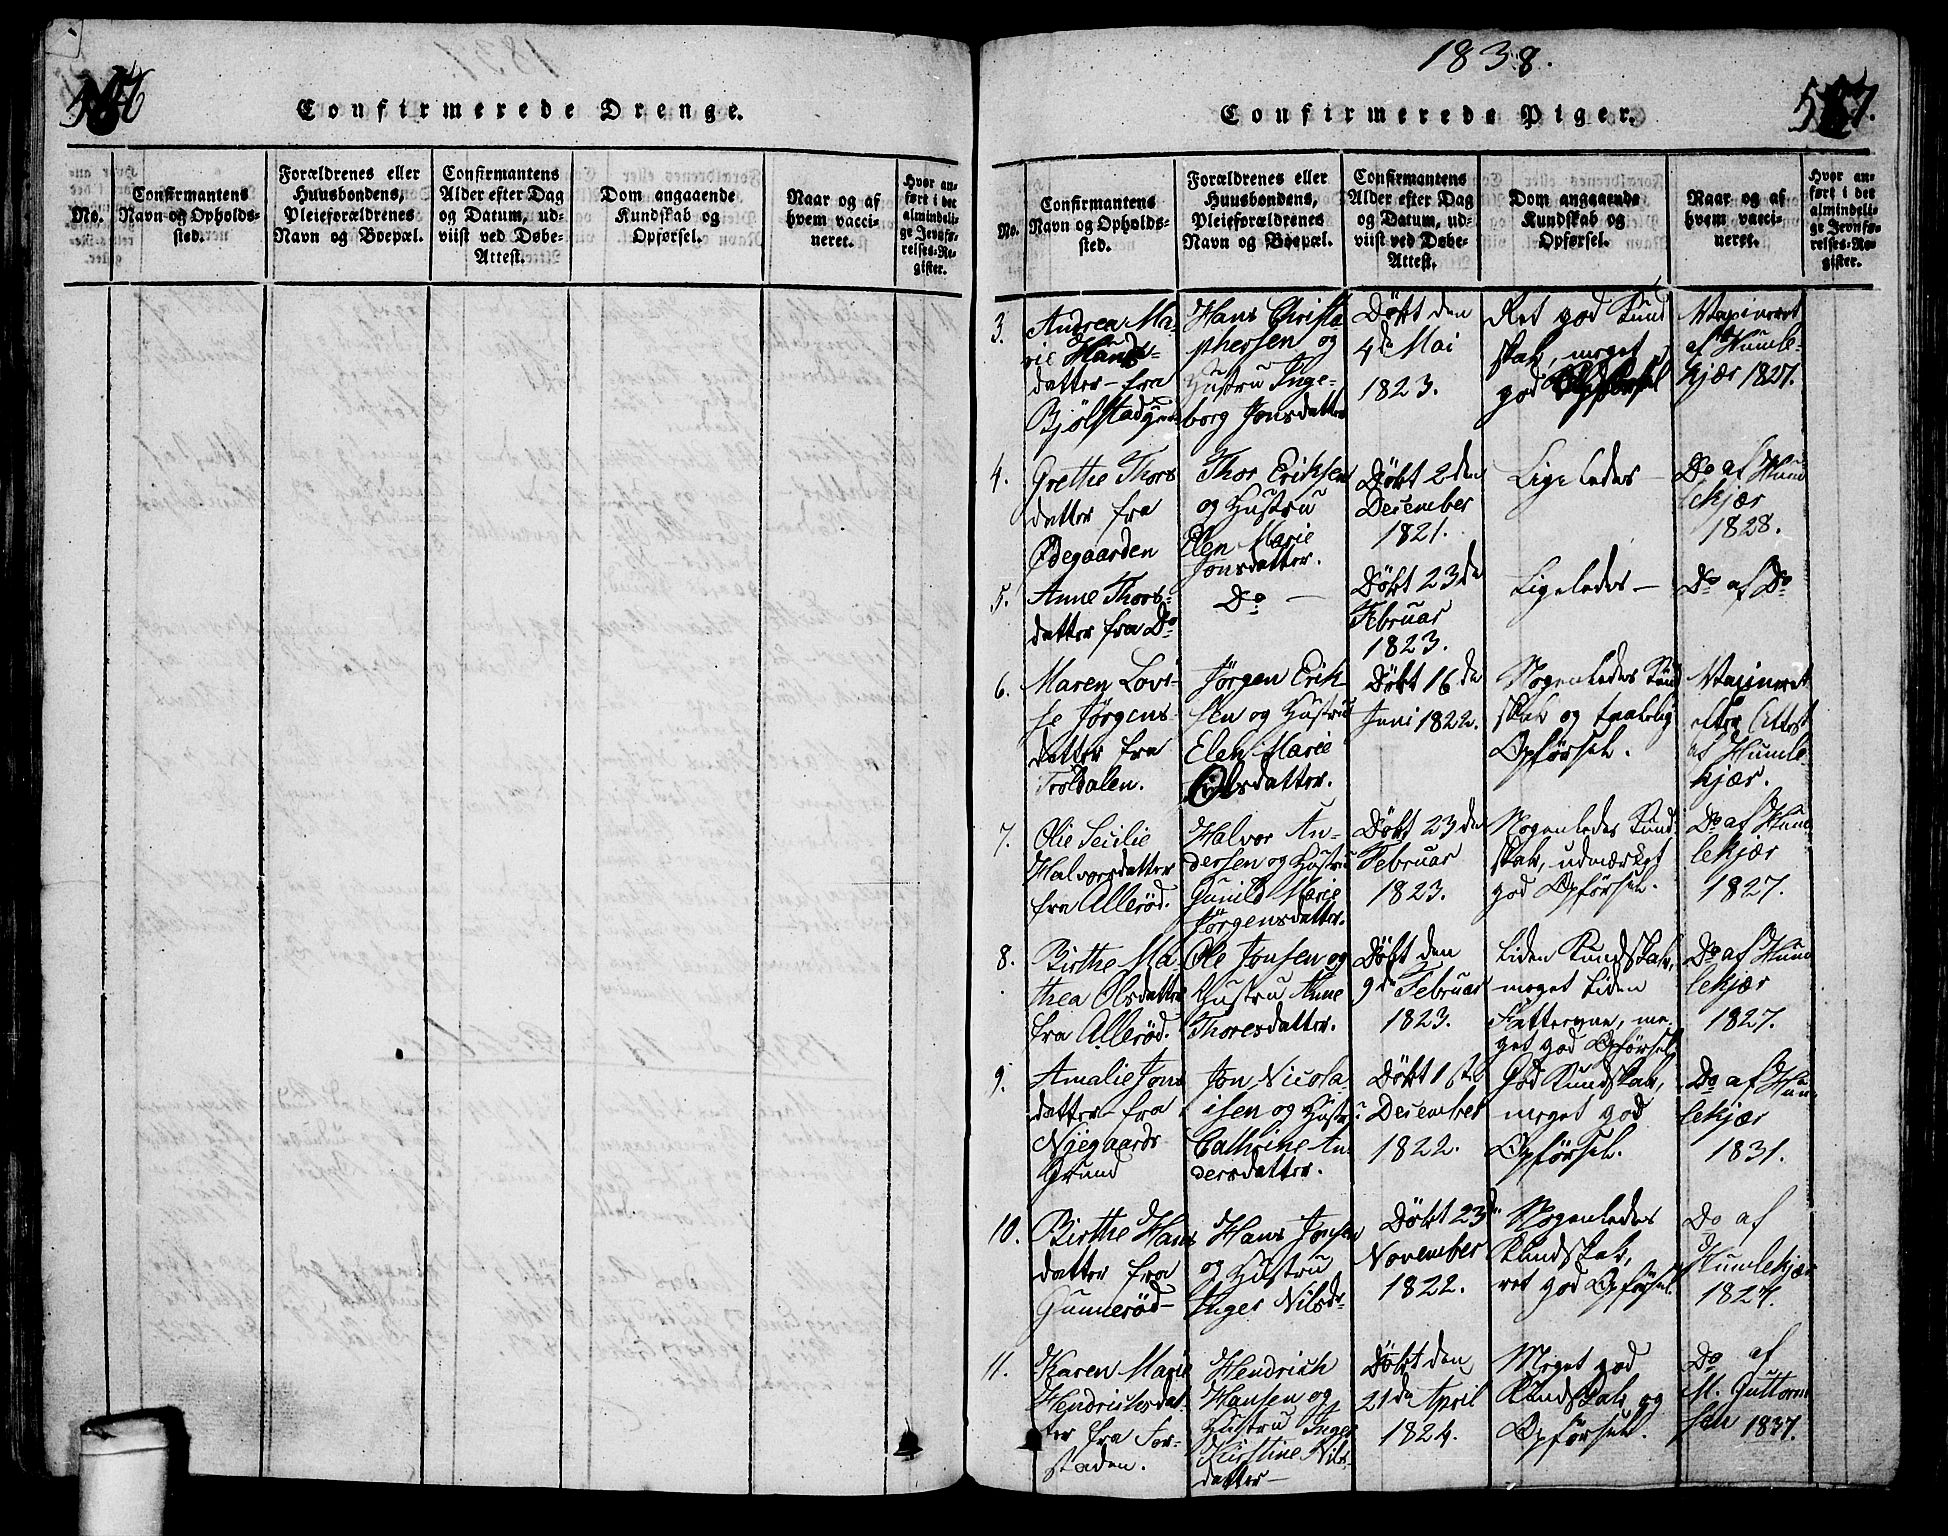 Confirmerede Drenge.
No.
Confirmantens
Navn og Opholds-
sted.
Forældrenes eller
Huusbondens,
Pleieforældrenes
Navn og Boepæl.
Confirmantens
Alder efter Dag
og Datum, ud-
viist ved Døbe-
Attest.
Dom angaaende
Kundskab og
Opførsel.
Naar og af
hvem vacci-
neret.
Hvor an-
ført i det
almindeli-
ge Jevnfø-
relses-Re-
gister.
1838.
Confirmerede Piger.
No.
Confirmantens
Navn og Opholds-
sted.
Forældrenes eller
Huusbondens,
Pleieforældrenes
Navn og Boepæl.
Confirmantens
Alder efter Dag
og Datum, ud-
viist ved Døbe-
Attest.
Dom angaaende
Kundskab og
Opførsel.
Naar og af
hvem vacci-
neret.
Hvor an-
ført i det
almindeli-
ge Jevnfø-
relses-Re-
gister.
3.
Andrea Ma-
rie Hans-
datter – fra
Hans Christo
phersen og
Hustru Inge-
borg Jonsdatter
Døbt den
4de Mai
1823.
Ret god Kund
skab, meget
god Opførsel
Vaxineret
af Humle-
kjær 1827.
4.
Grethe Thors
datter fra
Ødegaarden
Thor Eriksen
og Hustru
Elen Marie
Jonsdatter.
Døbt 2den
December
1821.
Ligeledes –
Do af Hum
lekjær
1828.
5.
Anne Thors-
datter fra Do
Do –
Døbt 23de
Februar
1823.
Ligeledes –
Do af Do
6.
Maren Lovi-
se Jørgens-
datter fra
Troldalen.
Jørgen Erik-
sen og Hustru
Elen Marie
Olsdatter.
Døbt 16de
Juni 1822.
Nogenledes Kund
skab og taalelig
Opførsel.
Vaxineret
efter Attest
af Humle-
kjær.
7.
Olie Secilie
Halvorsdatter
fra Allerød.
Halvor An-
dersen og Hustru
Gunild Marie
Jørgensdatter.
Døbt 23de
Februar
1823.
Nogenledes Kund
skab, udmærket
god Opførsel.
Do af Hum
lekjær
1827.
8.
Birthe Ma-
thea Olsdatter
fra Allerød.
Ole Jonsen og
Hustru Anne
Thoresdatter.
Døbt den
9de Februar
1823.
Liden Kundskab,
meget liden
Fatteevne, me-
get god Opførsel
Do af Hum
lekjær
1827.
9.
Amalie Jons
datter – fra
Nyegaards
Grund
Jon Nicola
isen og Hustru
Cathrine An
dersdatter.
Døbt 16de
December
1822.
God Kundskab,
meget god
Opførsel.
Do af Hum
lekjær
1831.
10.
Birthe Hans
datter fra
Gunnerød –
Hans Jonsen
og Hustru
Inger Nilsdr-
Døbt 23de
November
1822.
Nogenledes
Kundskab,
ret god Opførsel.
Do af
Humlekjær
1827.
11.
Karen Marie
Hendrichsdat-
ter fra Tor-
staden.
Hendrich
Hansen og
Hustru Inger
Kirstine Nils-
datter –
Døbt den
21de April
1824.
Meget god
Kundskab og
Opførsel.
Do af
M. Guttorm
sen 1837.